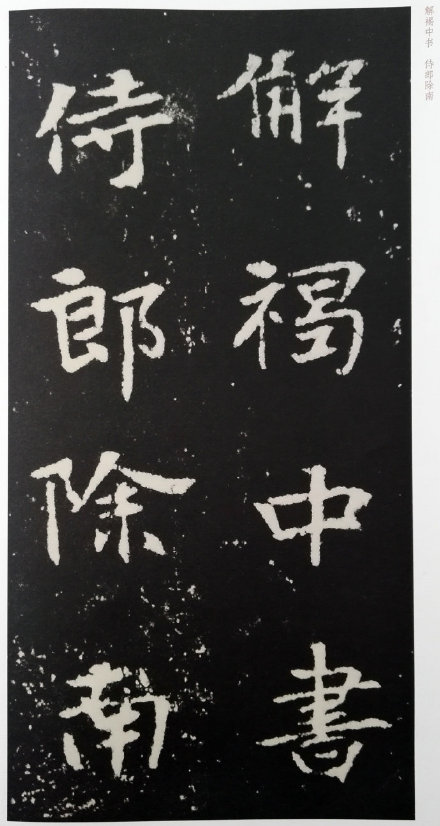 解褐中书　侍郎除南
解褐中書
侍郎除南